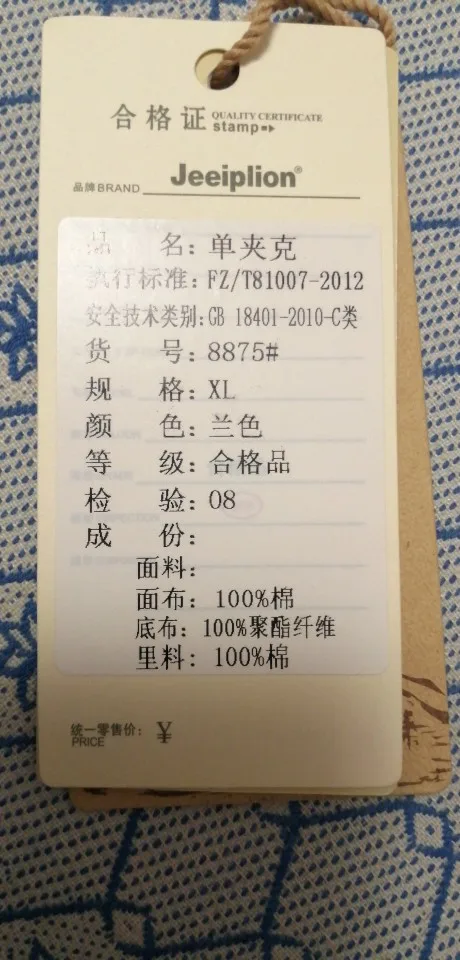 合格证 QUALITY CERTIFICATE
stamp
品牌 BRAND Jeeiplion®
品 名：单夹克
执行标准：FZ/T81007-2012
安全技术类别:GB 18401-2010-C类
货 号：8875#
规 格：XL
颜 色：兰色
等 级：合格品
检 验：08
成 份：
面料：
面布：100%棉
底布：100%聚酯纤维
里料：100%棉
统一零售价： ¥
PRICE